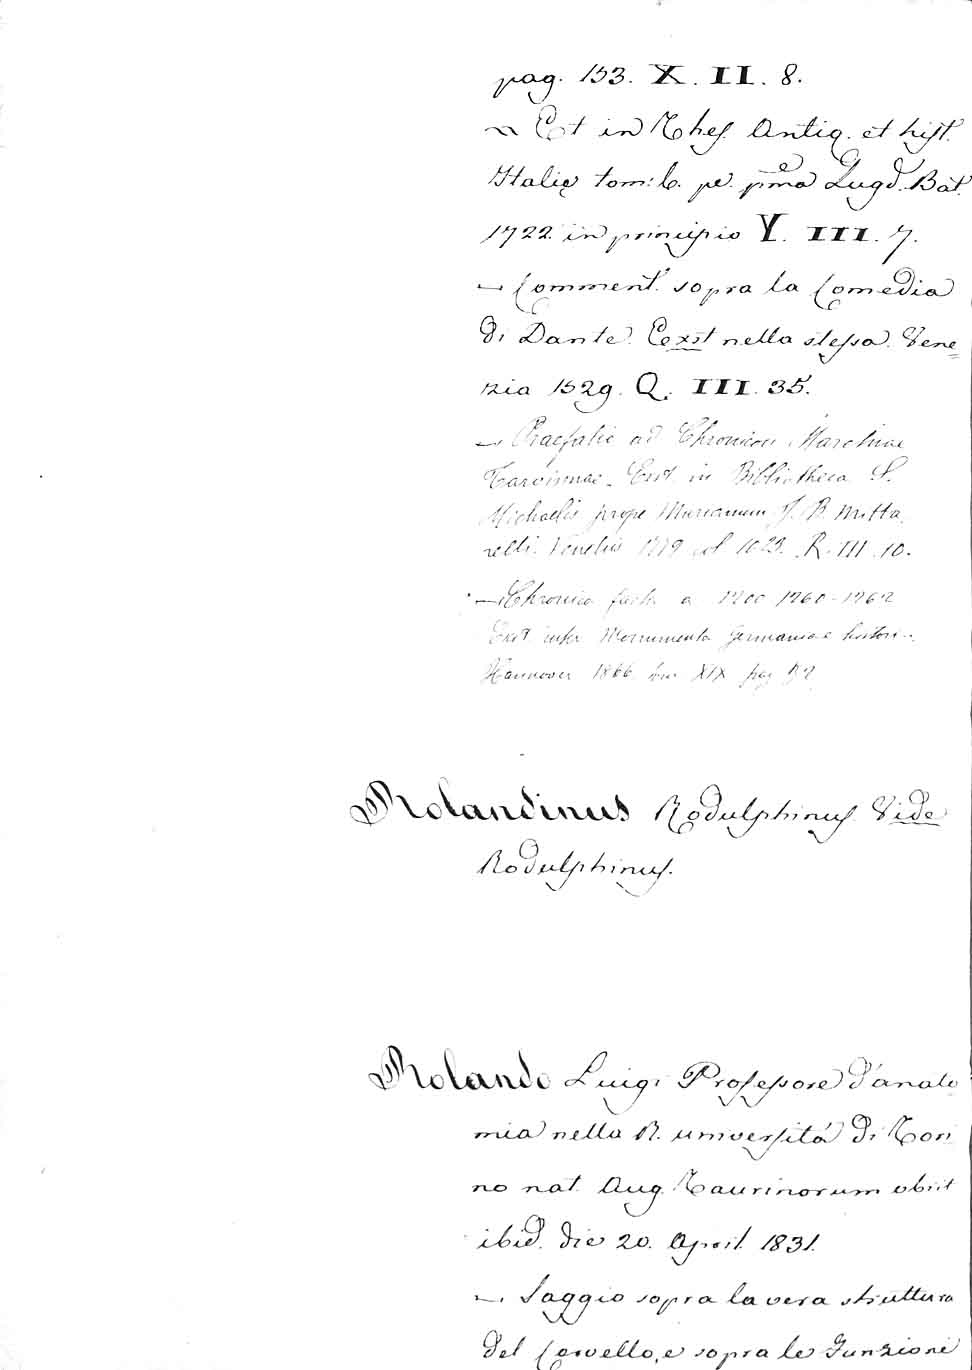 pag. 153. X. II. 8.
~ Et in Thes. Antiq. et hist.
Italię tom: 6. pe. pma Lugd. Bat.
1722. in principio Y. III. 7.
— Comment. sopra la Comedia
di Dante. Exst nella stessa. Vene=
zia 1529. Q. III. 35.
— Praefatio ad Chronicon Marchiae
Tarvisinae. Exst. in Bibliotheca S.
Michaelis prope Murianum J. B. Mitta
relli. Venetiis 1779 col 1023. R. III. 10.
— Chronica facta a 1200 1260-1262
Exst inter Monumenta Germaniae histori..
Hannover 1866. tom XIX pag
Rolandinus Rodulphinus. Vide
Rodulphinus.
Rolando Luigi Professore d'anato
mia nella R. università di Tori
no nat. Aug. Taurinorum obiit
ibid. die 20. April. 1831.
— Saggio sopra la vera struttura
del Cervello, e sopra le Funzioni